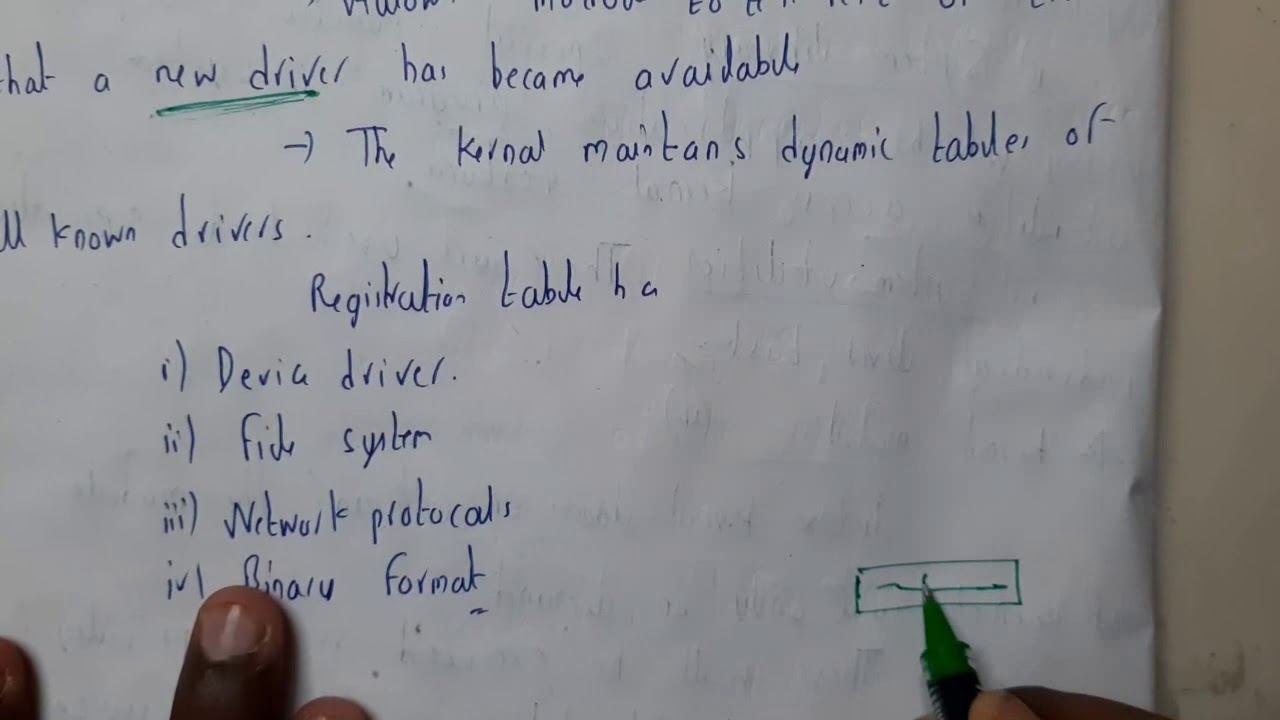 that a new driver has became availabule
→ The kernal maintans dynamic tabules of
all known drivers.
Registration tabule ha
i) Device driver.
ii) File system
iii) Network protocals
iv) Binary format